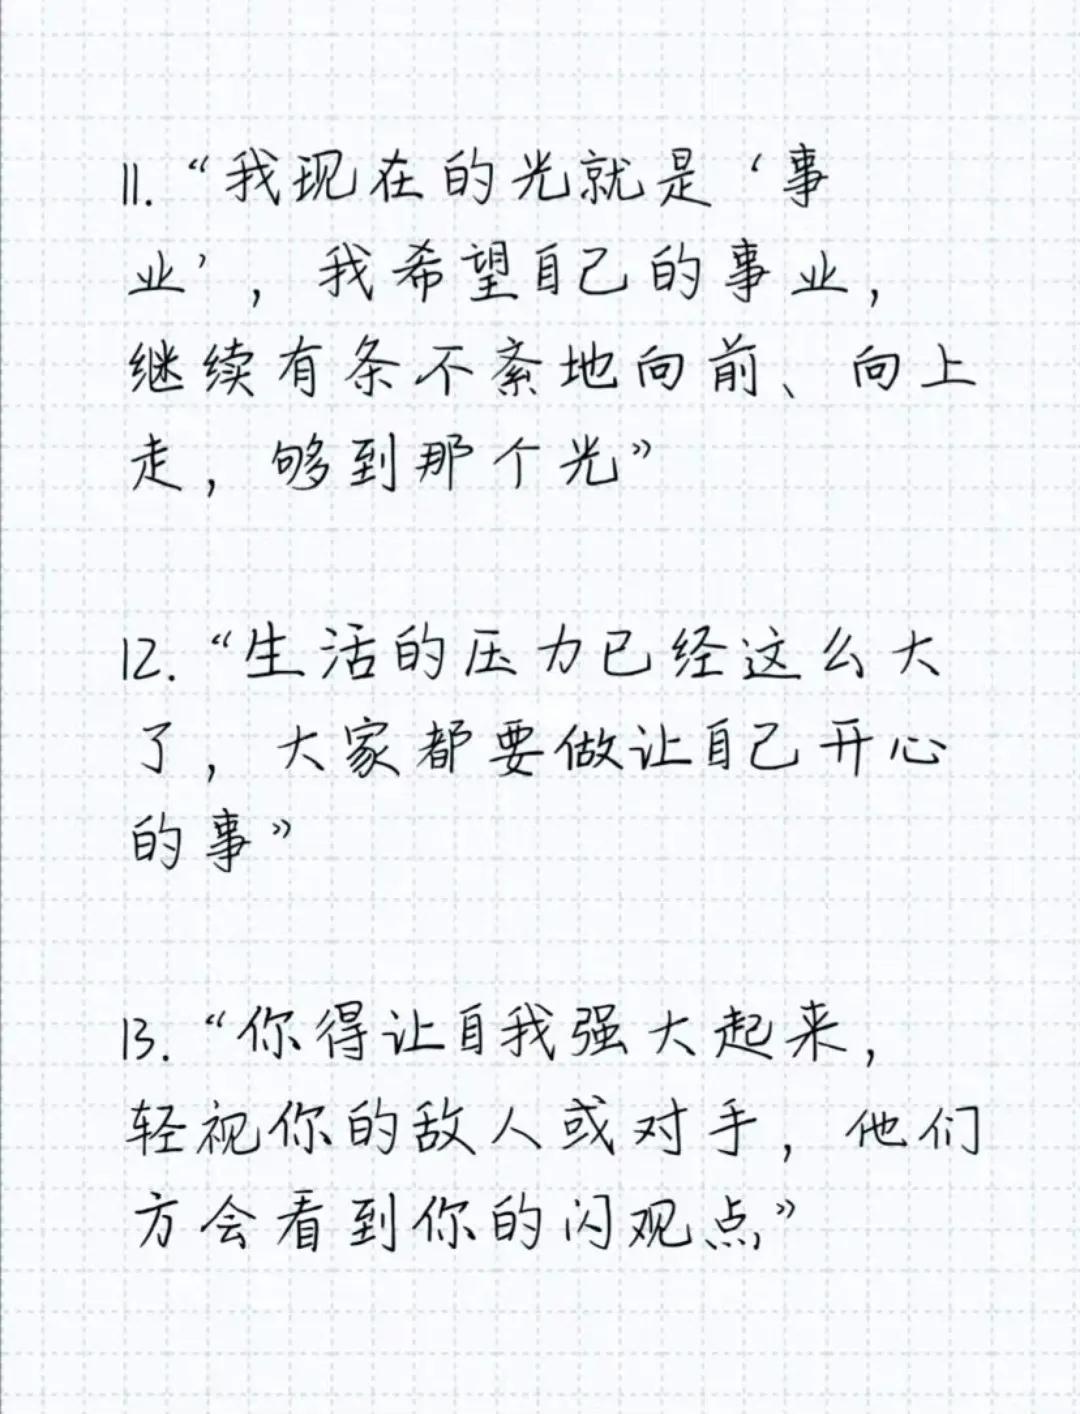 11.“我现在的光就是‘事
业’，我希望自己的事业，
继续有条不紊地向前、向上
走，够到那个光”
12.“生活的压力已经这么大
了，大家都要做让自己开心
的事”
13.“你得让自我强大起来，
轻视你的敌人或对手，他们
方会看到你的闪观点”